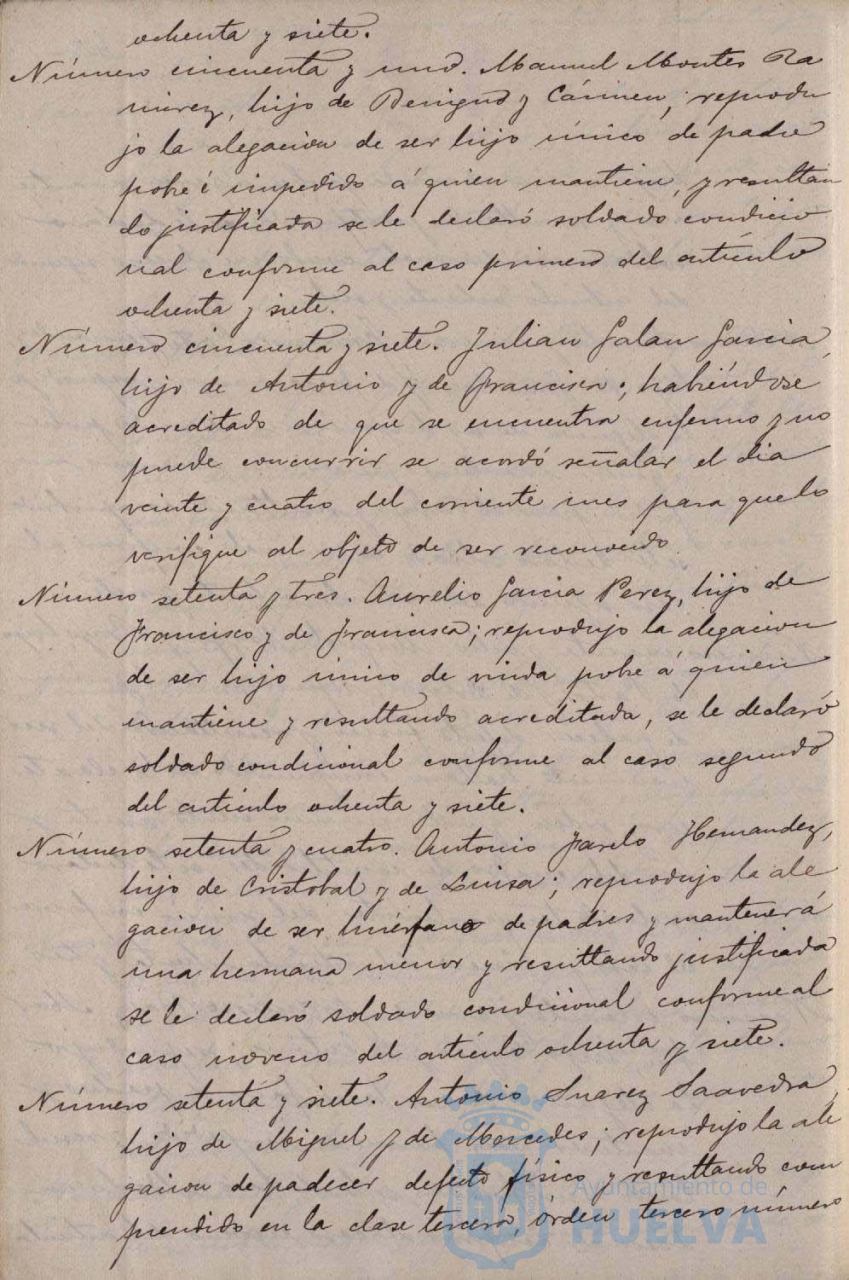 ochenta y siete.
Número cincuenta y uno. Manuel Montes Ra
mirez, hijo de Benigno y Cármen; reprodu
jo la alegacion de ser hijo único de padre
pobre é impedido á quien mantiene, y resultan
do justificada se le declaró soldado condicio
nal conforme al caso primero del artículo
ochenta y siete.
Número cincuenta y siete. Julian Galan Garcia,
hijo de Antonio y de Francisca; habiéndose
acreditado de que se encuentra enfermo y no
puede concurrir se acordó señalar el dia
veinte y cuatro del corriente mes para que lo
verifique al objeto de ser reconocido
Número setenta y tres. Aurelio Garcia Perez, hijo de
Francisco y de Francisca; reprodujo la alegacion
de ser hijo único de viuda pobre á quien
mantiene y resultando acreditada, se le declaró
soldado condicional conforme al caso segundo
del artículo ochenta y siete.
Número setenta y cuatro. Antonio Hernandez,
hijo de Cristobal y de Luisa; reprodujo la ale
gacion de ser huérfano de padres y mantener á
una hermana menor y resultando justificada
se le declaró soldado condicional conforme al
caso noveno del artículo ochenta y siete.
Número setenta y siete. Antonio Suarez Saavedra,
hijo de Miguel y de Mercedes; reprodujo la ale
gacion de padecer defecto físico y resultando com
prendido en la clase tercera, órden tercero número
Ayuntamiento de
HUELVA